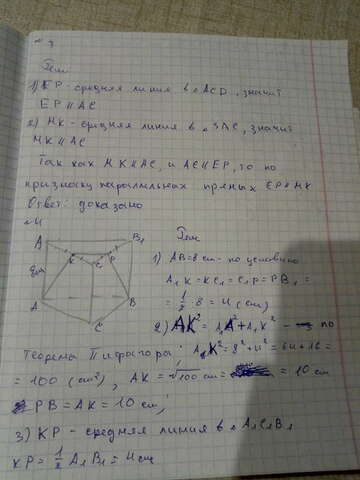 №3
Реш
1) EP - средняя линия в △ACD, значит
EP ∥ AC
2) МК - средняя линия в △ЗАС, значит
МК ∥ АС
Так как МК ∥ АС, и АС ∥ ЕР, то по
признаку паралильных прямых ЕР ∥ МК
Ответ: доказано
№4
Реш
A₁ B₁
K C₁ P
8см
A B
C
1) АВ=8см - по условию
A₁K = KC₁ = C₁P = PB₁ =
= 1/2 · 8 = 4 (см)
2) AK² = A₁A² + A₁K² - по
теореме Пифагора: AK² = 8² + 4² = 64 + 16 =
= 100 (см²), AK = √100 см = 10 см
PB = AK = 10 см,
3) KP - средняя линия в △A₁C₁B₁
KP = 1/2 A₁B₁ = 4 см